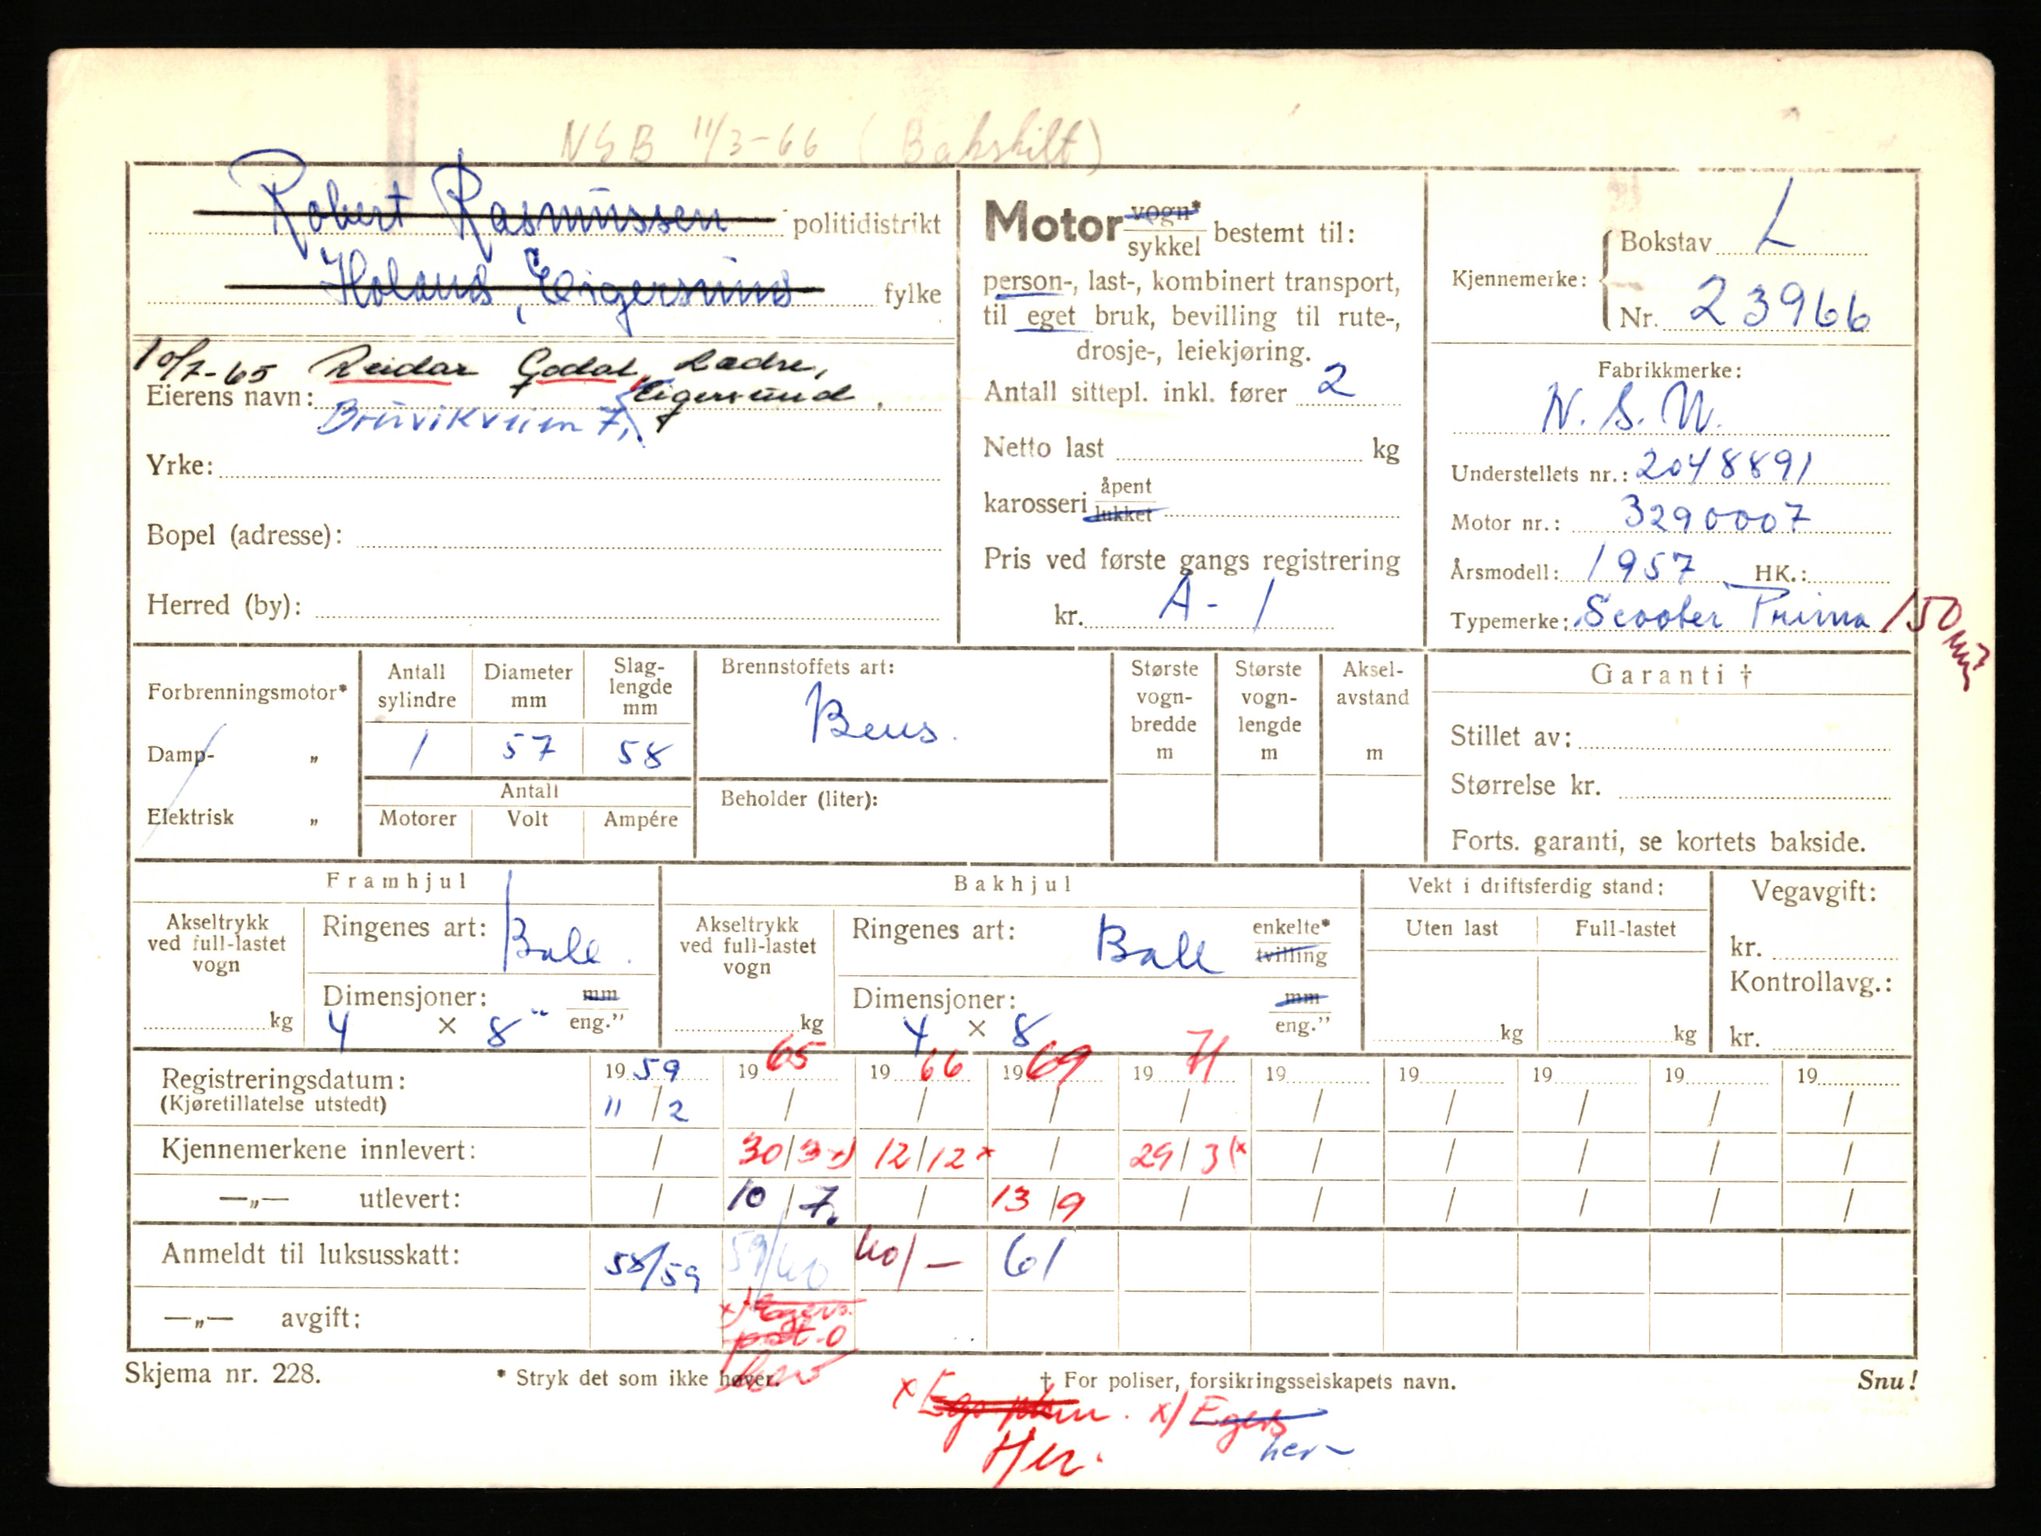 NSB 11/3-66 (Bakskilt)
Robert Rasmussen politidistrikt
Holand, Eigersund fylke
10/7-65 Reidar Godal, Lædre,
Eierens navn: Eigersund.
Bruvikveien 7,
Yrke:
Bopel (adresse):
Herred (by):
Motor vogn* sykkel bestemt til:
person-, last-, kombinert transport,
til eget bruk, bevilling til rute-,
drosje-, leiekjøring.
Antall sittepl. inkl. fører 2
Netto last kg
karosseri åpent lukket
Pris ved første gangs registrering
kr. A-1
Kjennemerke: Bokstav L
Nr. 23966
Fabrikkmerke:
N.S.U.
Understellets nr.: 2048891
Motor nr.: 3290007
Årsmodell: 1957 HK.:
Typemerke: Scooter Prima 150
Forbrenningsmotor*
Damp- „
Elektrisk „
Antall sylindre
Diameter mm
Slag-lengde mm
1 57 58
Antall
Motorer Volt Ampére
Brennstoffets art:
Bens.
Beholder (liter):
Største vogn-bredde m
Største vogn-lengde m
Aksel-avstand m
Garanti †
Stillet av:
Størrelse kr.
Forts. garanti, se kortets bakside.
Framhjul
Akseltrykk ved full-lastet vogn
kg
Ringenes art: Ball.
Dimensjoner: mm
4 × 8" eng."
Bakhjul
Akseltrykk ved full-lastet vogn
kg
Ringenes art: Ball enkelte* tvilling
Dimensjoner: mm
4 × 8 eng."
Vekt i driftsferdig stand:
Uten last Full-lastet
kg kg
Vegavgift:
kr.
Kontrollavg.:
kr.
Registreringsdatum: 1959 1965 1966 1969 1971 19 19 19 19 19
(Kjøretillatelse utstedt) 11/2 / / / / / / / / /
Kjennemerkene innlevert: / 30/3 x) 12/12 x / 29/3 (x / / / / /
—„— utlevert: / 10/7. / 13/9 / / / / / /
Anmeldt til luksusskatt: 58/59 59/60 60/- 61
—„— avgift: x) Egers.
post.o
her
Skjema nr. 228. * Stryk det som ikke høver. † For poliser, forsikringsselskapets navn. Snu!
x x) Egers
Her. her